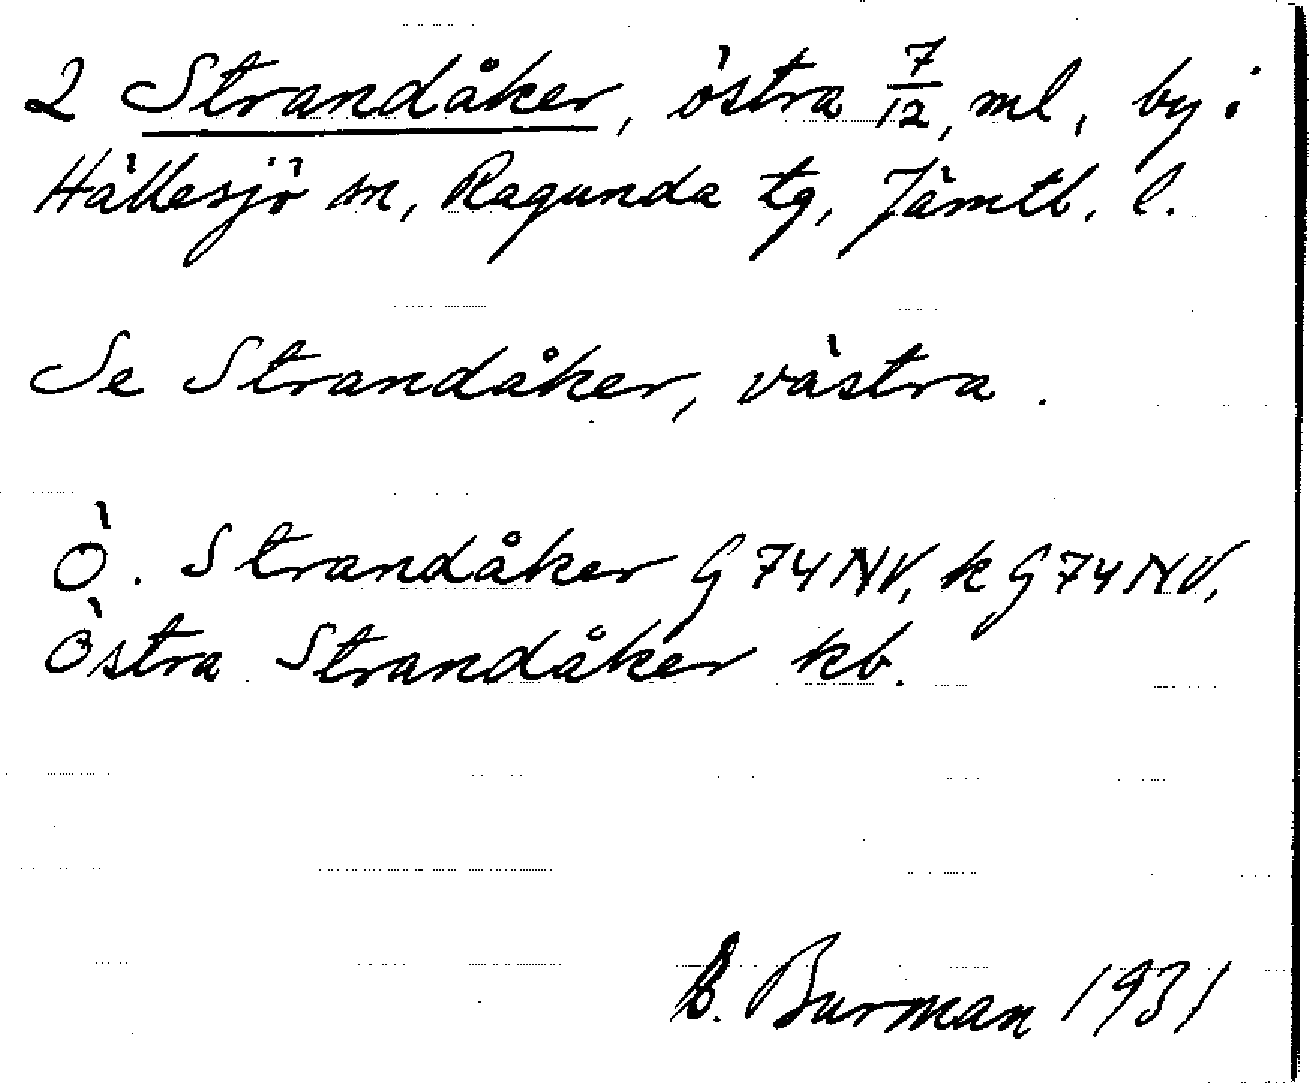 2 Strandåker, östra 7/12, ml, by i
Hällesjö sn, Ragunda tg, Jämtl. l.
Se Strandåker, västra.
Ö. Strandåker G 74 NV, k G 74 NV,
Östra Strandåker kb.
B. Burman 1931